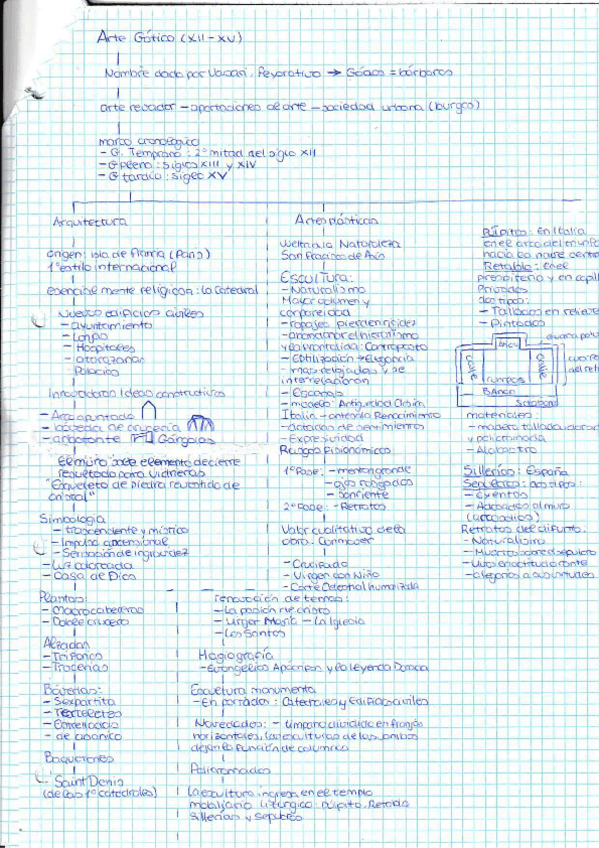 Arte Gótico (XII-XV)
Nombre dado por Vasari. Peyorativo → Godos = bárbaros
arte revador - aportaciones al arte - sociedad urbana (burgos)
marco cronológico
- G. Temprano: 2º mitad del siglo XII
- G pleno: siglos XIII y XIV
- G tardío: siglo XV
Arquitectura
origen: isla de Francia (París)
1º estilo internacional
esencialmente religiosa: la Catedral
Nuevos edificios civiles
- ayuntamiento
- Lonjas
- Hospitales
- atarazanas
- Palacios
Innovadoras ideas constructivas
- Arco apuntado
- bóveda de crucería
- arbotante Gárgolas
El muro solo elemento de cierre
resultado para vidrieras
"Esqueleto de piedra revestido de
cristal"
Simbología
- trascendente y místico
- Impulso ascensional
- Sensación de ingravidez
- Luz coloreada
- Casa de Dios
Plantas:
- Macrocabeceras
- Doble crucero
Alzados
- Triforios
- Tracerías
Bóvedas:
- Sexpartita
- Terceletes
- Estrellada
- de abanico
Baquetones
Saint Denis
(de las 1º catedrales)
Artes plásticas
Vuelta a la Naturaleza
San Francisco de Asís
Escultura:
- Naturalismo
Mayor volumen y
corporeidad
- ropajes pierden rigidez
- abandonan el hieratismo
y la frontalidad: Contraposto
- Estilización → Elegancia
- mas relajados y se
interrelacionan
- Escenas
- modelo: Antigüedad Clásica
Italia - anterior Renacimiento
- dotación de sentimientos
- Expresividad
Rasgos Fisionómicos
1ª Fase: - mentón grande
- ojos rasgados
- sonriente
2ª Fase: - Retratos
Valor cualitativo de la
obra. Conmover
- Crucificado
- Virgen con Niño
- Corte Celestial humanizada
renovación de temas:
- La pasión de Cristo
- Virgen María - La Iglesia
- Los Santos
Hagiografía
- Evangelios Apócrifos y la Leyenda Dorada
Escultura monumental
- En portadas: Catedrales y Edificios civiles
Novedades: - tímpano dividido en franjas
horizontales, las esculturas de las jambas
dejan la función de columnas
Policromadas
La escultura ingresa en el templo
mobiliario litúrgico: Púlpito, Retablo
Sillerías y Sepulcro
Púlpitos: en Italia
en el arco del triunfo
hacia la nave central
Retablo: en el
presbiterio y en capillas
Privadas
dos tipos:
- Tallados en relieve
- Pintados
Ático
calle
calle
cuerpos
Banco
Sotobanco
guardapolvo
materiales
- madera tallada dorada
y policromada
- Alabastro
Sillerías: España
Sepulcros: dos tipos:
- Exentos
- Adosados al muro
(arcosolios)
Retratos del difunto:
- Naturalismo
- Muertos sobre el sepulcro
- Vivos en actitud orante
- alegorías a sus virtudes